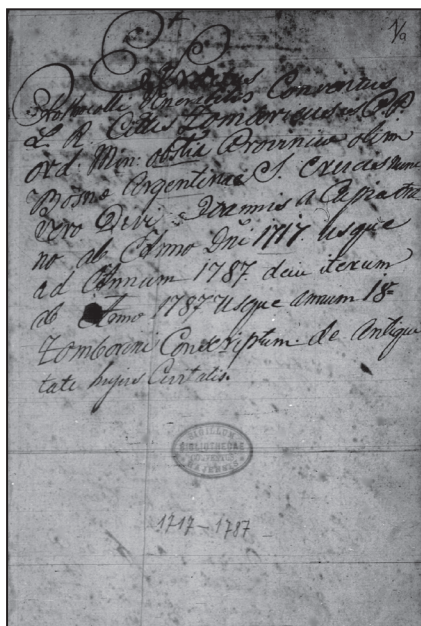 Protocolli Venerabilis Conventus
L. R. Cittis Zomboriensis P. P.
Ord. Min: obstiæ Provinciæ olim
Bosnæ Argentinae S. Crucis nunc
vero Divi Joannis a Capistra
no ab Anno Dni 1717. usque
ad Annum 1787. dein iterum
ab Anno 1787 usque annum 18
Zomborini Conscriptum de Antiqui
tate hujus Civitatis.
SIGILLUM
BIBLIOTHECAE
1717-1787